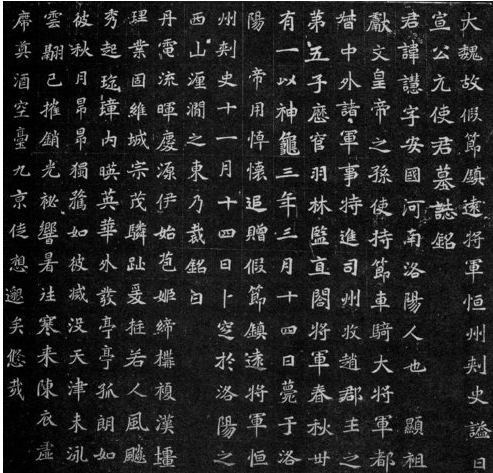 大魏故假節鎮遠將軍恒州刾史謚曰
宣公元使君墓誌銘
君諱譿字安國河南洛陽人也 顯祖
獻文皇帝之孫使持節車騎大將軍都
督中外諸軍事特進司州牧趙郡王之
第五子歷官羽林監直閤將軍春秋卅
有一以神龜三年三月十四日薨于洛
陽 帝用悼懷追贈假節鎮遠將軍恒
州刾史十一月十四日卜窆於洛陽之
西山瀍澗之東乃裁銘曰
丹電流暉慶源伊始苞姬締構複漢壃
理業固維城宗茂驎趾爰挺若人風飈
秀起珫璋内暎英華外發亭亭孤朗如
彼秋月昂昂獨騖如彼滅没天津未泳
雲翮已摧銷光祕響暑往寒来陳衣虛
席奠酒空臺九京徒想邈矣悠哉